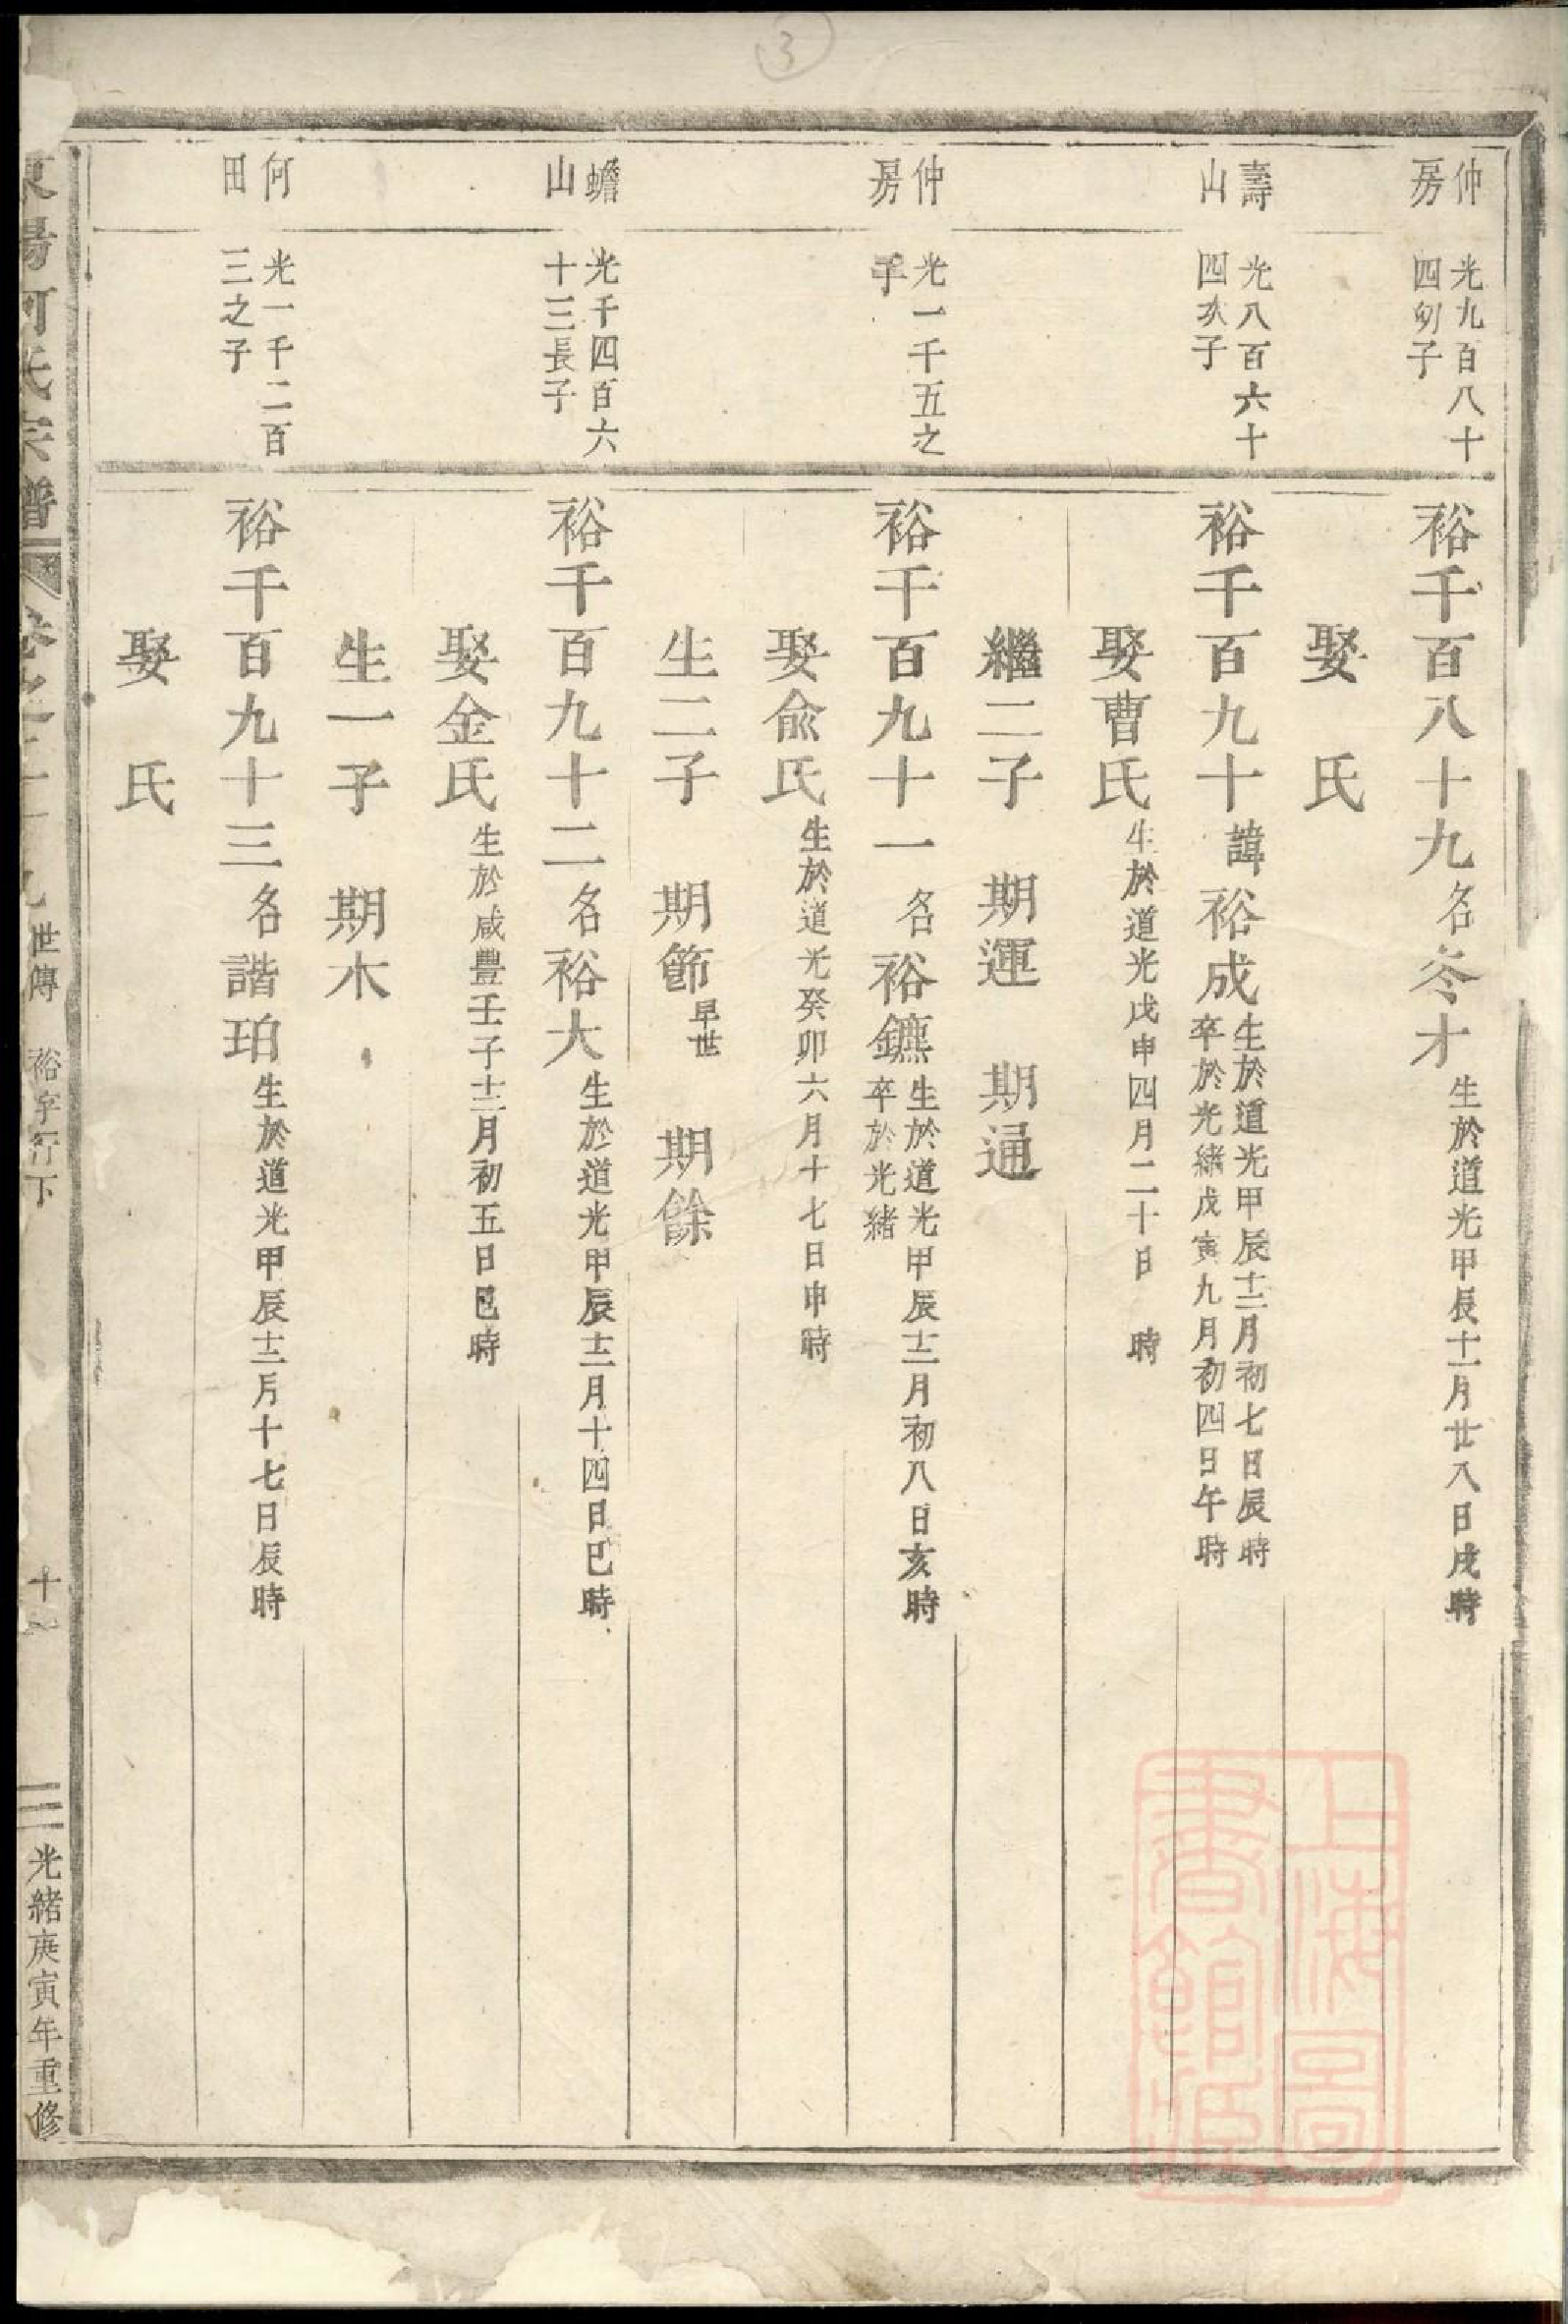 ③
仲房
光九百八十四幼子
裕千百八十九名冬才生於道光甲辰十一月廿八日戌時
娶　氏
壽山
光八百六十四次子
裕千百九十諱裕成生於道光甲辰十二月初七日辰時
卒於光緒戊寅九月初四日午時
娶曹氏生於道光戊申四月二十日　時
繼二子　期運　期通
仲房
光一千五之子
裕千百九十一名裕鑣生於道光甲辰十二月初八日亥時
卒於光緒
娶俞氏生於道光癸卯六月十七日申時
生二子　期節早世　期餘
蟾山
光千四百六十三長子
裕千百九十二名裕大生於道光甲辰十二月十四日巳時
娶金氏生於咸豐壬子十二月初五日巳時
生一子　期木
何田
光一千二百三之子
裕千百九十三名諧珀生於道光甲辰十二月十七日辰時
娶　氏
東陽何氏宗譜
世傳　裕字行下
光緒庚寅年重修
上海圖書館藏